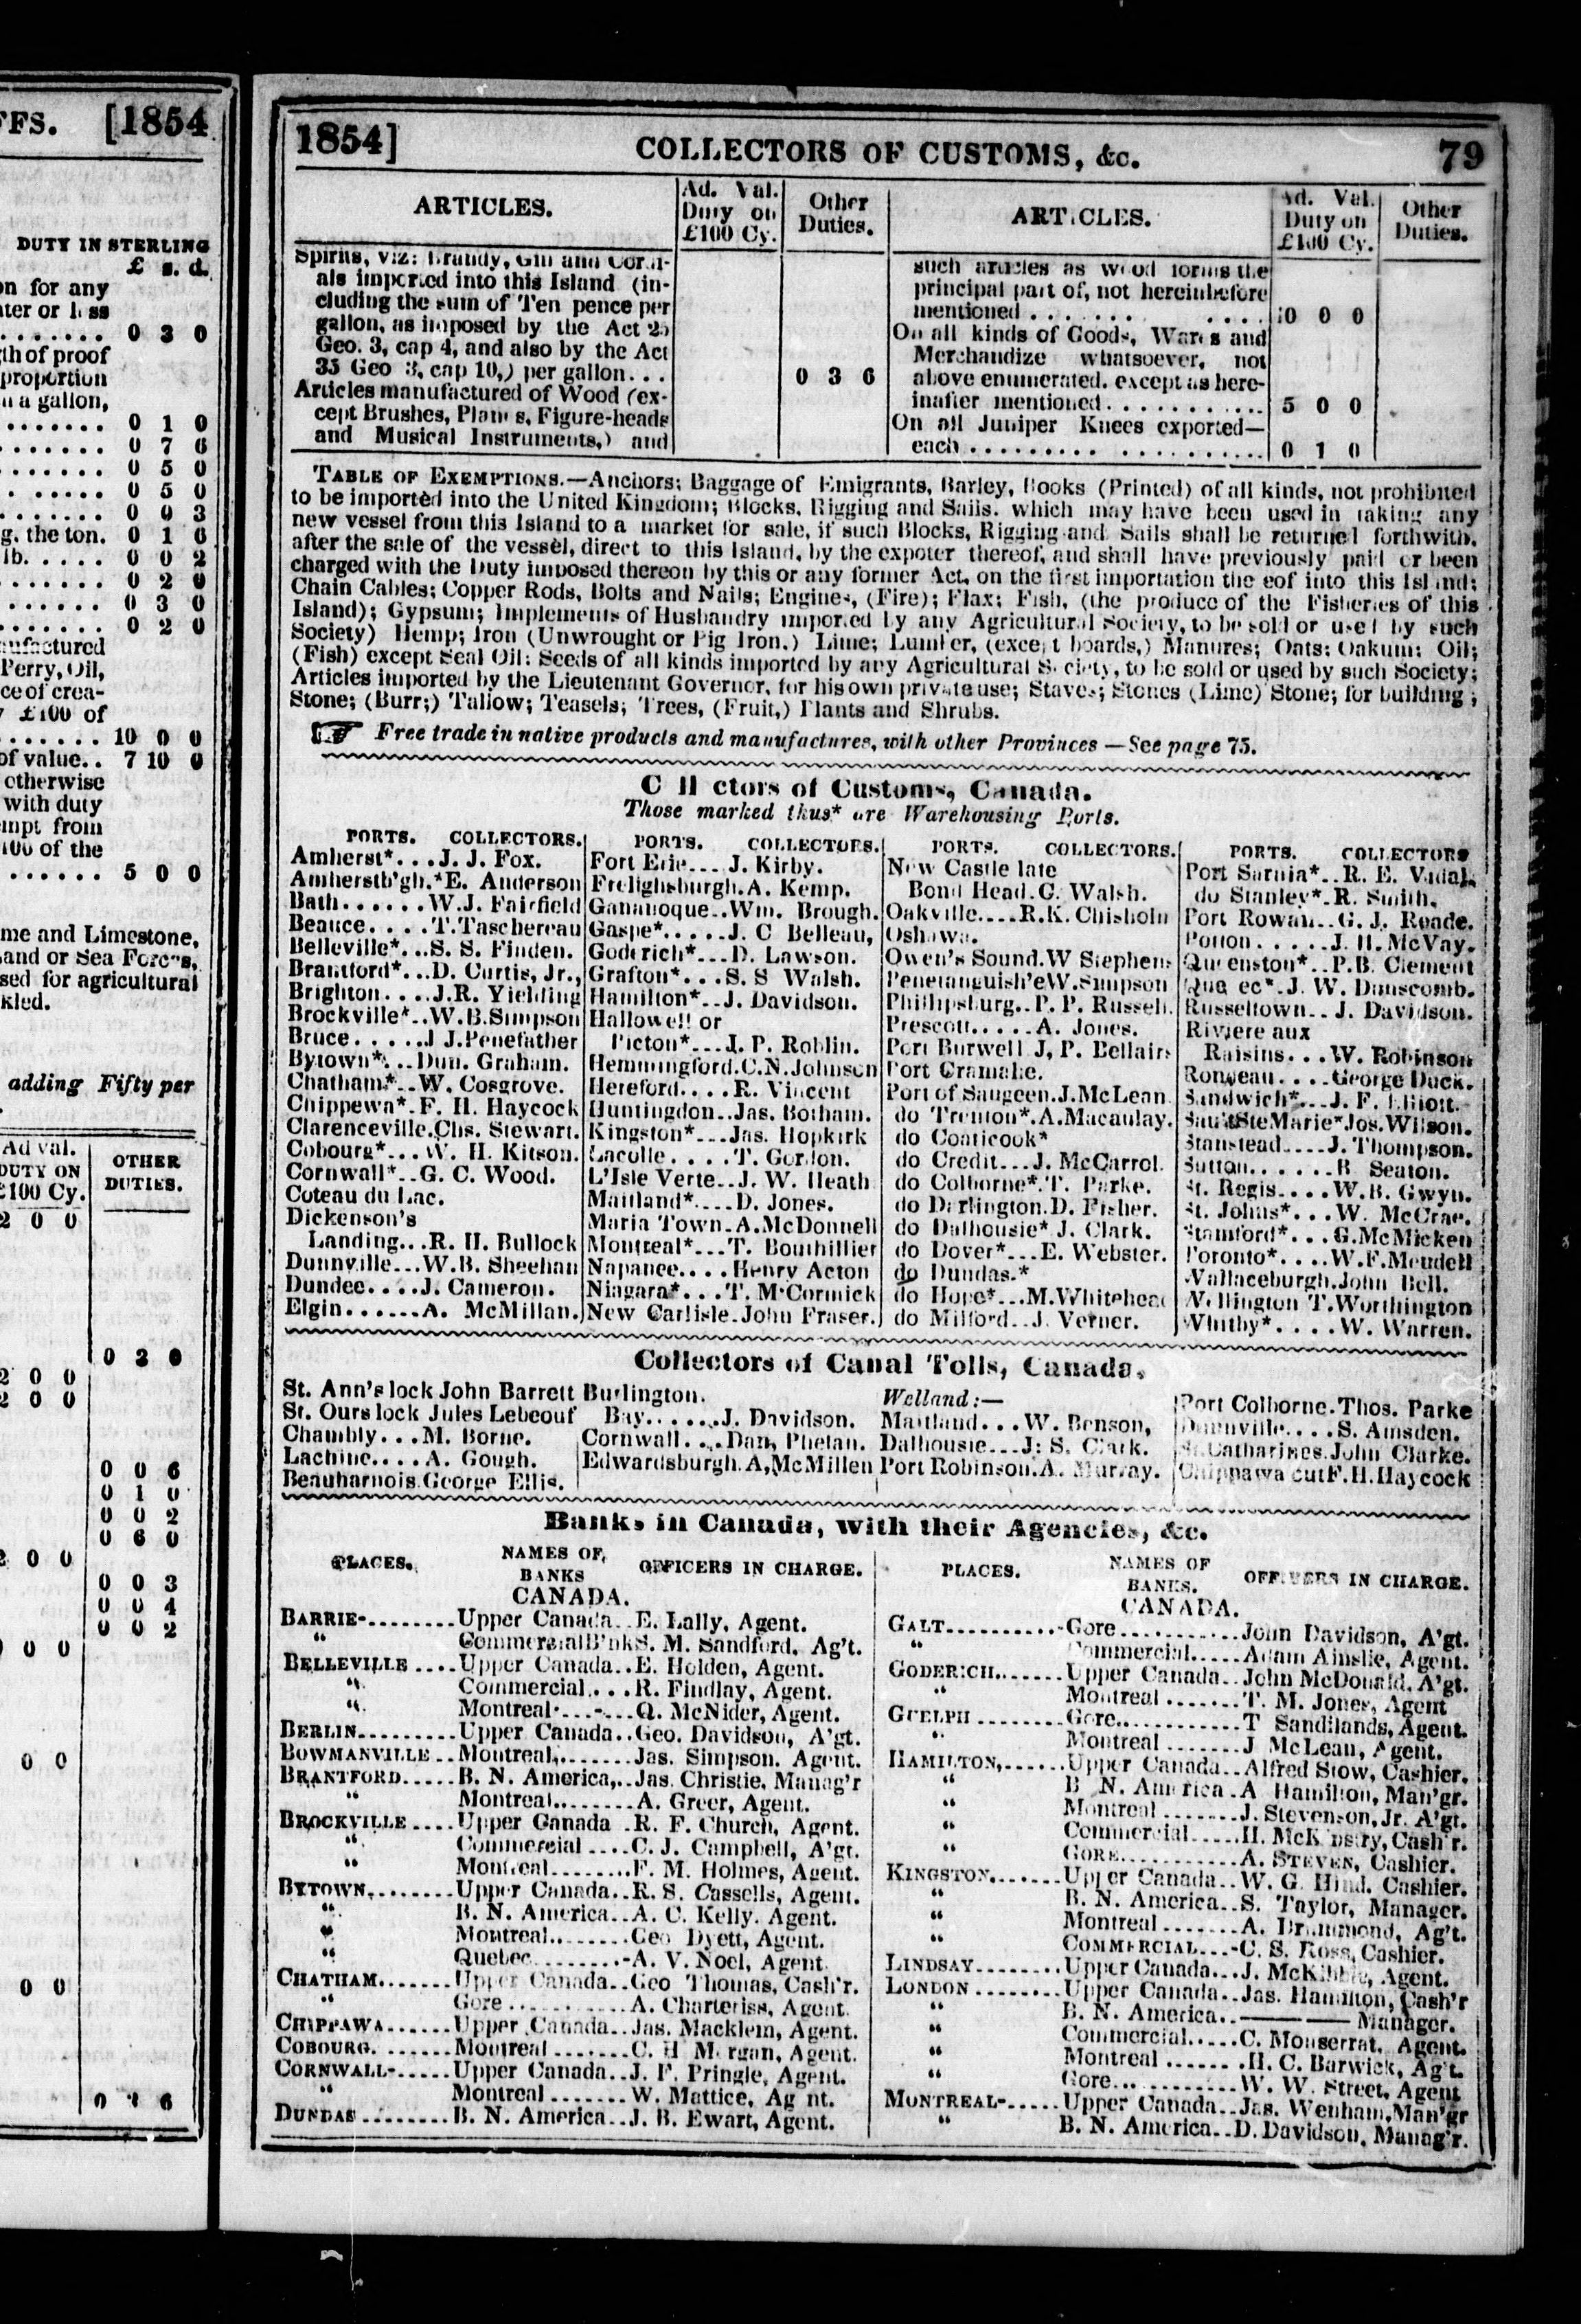 FFS. [1854
DUTY IN STERLING
£ s. d.
on for any
ter or less
....... 0 3 0
th of proof
proportion
n a gallon,
....... 0 1 0
....... 0 7 6
....... 0 5 0
...... 0 5 0
....... 0 0 3
g. the ton. 0 1 6
lb..... 0 0 2
....... 0 2 0
...... 0 3 0
....... 0 2 0
nufactured
Perry, Oil,
ce of crea-
£100 of
....... 10 0 0
of value.. 7 10 0
otherwise
with duty
empt from
100 of the
...... 5 0 0
me and Limestone,
Land or Sea Forces,
sed for agricultural
kled.
adding Fifty per
Ad val.
DUTY ON
£100 Cy.
OTHER
DUTIES.
2 0 0
0 2 0
2 0 0
2 0 0
0 0 6
0 1 0
0 0 2
0 6 0
2 0 0
0 0 3
0 0 4
0 0 2
0 0
0 0
0 0
1854] COLLECTORS OF CUSTOMS, &c. 79
ARTICLES.
Ad. Val.
Duty on
£100 Cy.
Other
Duties.
Spirits, viz: Brandy, Gin and Cordi-
als imported into this Island (in-
cluding the sum of Ten pence per
gallon, as imposed by the Act 25
Geo. 3, cap 4, and also by the Act
35 Geo 3, cap 10,) per gallon... 0 3 6
Articles manufactured of Wood (ex-
cept Brushes, Planes, Figure-heads
and Musical Instruments,) and
ARTICLES.
Ad. Val.
Duty on
£100 Cy.
Other
Duties.
such articles as wood forms the
principal part of, not hereinbefore
mentioned........... 10 0 0
On all kinds of Goods, Wares and
Merchandize whatsoever, not
above enumerated, except as here-
inafter mentioned........... 5 0 0
On all Juniper Knees exported—
each.................... 0 1 0
TABLE OF EXEMPTIONS.—Anchors; Baggage of Emigrants, Barley, Books (Printed) of all kinds, not prohibited
to be imported into the United Kingdom; Blocks, Rigging and Sails. which may have been used in taking any
new vessel from this Island to a market for sale, if such Blocks, Rigging and Sails shall be returned forthwith,
after the sale of the vessel, direct to this Island, by the expoter thereof, and shall have previously paid or been
charged with the Duty imposed thereon by this or any former Act, on the first importation thereof into this Island;
Chain Cables; Copper Rods, Bolts and Nails; Engines, (Fire); Flax; Fish, (the produce of the Fisheries of this
Island); Gypsum; Implements of Husbandry imported by any Agricultural Society, to be sold or used by such
Society) Hemp; Iron (Unwrought or Pig Iron.) Lime; Lumber, (except boards,) Manures; Oats; Oakum; Oil;
(Fish) except Seal Oil: Seeds of all kinds imported by any Agricultural Society, to be sold or used by such Society;
Articles imported by the Lieutenant Governor, for his own private use; Staves; Stones (Lime) Stone; for building;
Stone; (Burr;) Tallow; Teasels; Trees, (Fruit,) Plants and Shrubs.
☞ Free trade in native products and manufactures, with other Provinces—See page 75.
C ll ctors of Customs, Canada.
Those marked thus* are Warehousing Ports.
PORTS. COLLECTORS.
Amherst*...J. J. Fox.
Amherstb'gh.*E. Anderson
Bath......W.J. Fairfield
Beauce....T.Taschereau
Belleville*...S. S. Finden.
Brantford*...D. Curtis, Jr.,
Brighton....J.R. Yielding
Brockville*..W.B.Simpson
Bruce.....J J.Penefather
Bytown*...Dun. Graham.
Chatham*..W. Cosgrove.
Chippewa*.F. H. Haycock
Clarenceville.Chs. Stewart.
Cobourg*...W. H. Kitson.
Cornwall*..G. C. Wood.
Coteau du Lac.
Dickenson's
Landing...R. H. Bullock
Dunnville...W.B. Sheehan
Dundee....J. Cameron.
Elgin......A. McMillan.
PORTS. COLLECTORS.
Fort Erie...J. Kirby.
Frelighsburgh.A. Kemp.
Gananoque..Wm. Brough.
Gaspe*.....J. C Belleau,
Goderich*...D. Lawson.
Grafton*...S. S Walsh.
Hamilton*..J. Davidson.
Hallowell or
Picton*...J. P. Roblin.
Hemmingford.C.N.Johnson
Hereford....R. Vincent
Huntingdon..Jas. Botham.
Kingston*...Jas. Hopkirk
Lacolle.....T. Gordon.
L'Isle Verte..J. W. Heath
Maitland*....D. Jones.
Maria Town.A.McDonnell
Montreal*...T. Bouthillier
Napanee....Henry Acton
Niagara*...T. McCormick
New Carlisle.John Fraser.
PORTS. COLLECTORS.
New Castle late
Bond Head.G. Walsh.
Oakville....R.K. Chisholm
Oshawa.
Owen's Sound.W Stephens
Penetanguish'eW.Simpson
Phillipsburg..P. P. Russell.
Prescott.....A. Jones.
Port Burwell J, P. Bellairs
Port Cramahe.
Port of Saugeen.J.McLean
do Trenton*.A.Macaulay.
do Coaticook*
do Credit...J. McCarrol.
do Colborne*.T. Parke.
do Darlington.D. Fisher.
do Dalhousie*.J. Clark.
do Dover*...E. Webster.
do Dundas.*
do Hope*...M.Whitehead
do Milford..J. Verner.
PORTS. COLLECTORS
Port Sarnia*..R. E. Vidal.
do Stanley*.R. Smith.
Port Rowan..G. J. Reade.
Potton.....J. H. McVay.
Queenston*..P.B. Clement
Quebec*.J. W. Dunscomb.
Russeltown..J. Davidson.
Riviere aux
Raisins...W. Robinson
Rondeau....George Duck.
Sandwich*...J. F. Elliott.
SaultSteMarie*Jos.Wilson.
Stanstead....J. Thompson.
Sutton......R. Seaton.
St. Regis....W.B. Gwyn.
St. Johns*...W. McCrae.
Stamford*...G.McMicken
Toronto*....W.F.Meudell
Wallaceburgh.John Bell.
Wellington T.Worthington
Whitby*....W. Warren.
Collectors of Canal Tolls, Canada.
St. Ann's lock John Barrett
St. Ours lock Jules Lebeouf
Chambly...M. Borne.
Lachine....A. Gough.
Beauharnois.George Ellis.
Burlington.
Bay......J. Davidson.
Cornwall....Dan, Phelan.
Edwardsburgh.A,McMillen
Welland:—
Maitland...W. Benson,
Dalhousie...J: S. Clark.
Port Robinson.A. Murray.
Port Colborne.Thos. Parke
Dunnville....S. Amsden.
St.Catharines.John Clarke.
Chippawa cutF.H.Haycock
Banks in Canada, with their Agencies, &c.
PLACES. NAMES OF BANKS OFFICERS IN CHARGE.
CANADA.
BARRIE-........Upper Canada..E. Lally, Agent.
“ CommercialB'nkS. M. Sandford, Ag't.
BELLEVILLE....Upper Canada..E. Holden, Agent.
“ Commercial...R. Findlay, Agent.
“ Montreal.......Q. McNider, Agent.
BERLIN.........Upper Canada..Geo. Davidson, A'gt.
BOWMANVILLE..Montreal,.......Jas. Simpson. Agent.
BRANTFORD.....B. N. America,..Jas. Christie, Manag'r
“ Montreal........A. Greer, Agent.
BROCKVILLE....Upper Canada.R. F. Church, Agent.
“ Commercial....C. J. Campbell, A'gt.
“ Montreal........F. M. Holmes, Agent.
BYTOWN,.......Upper Canada..R. S. Cassells, Agent.
“ B. N. America..A. C. Kelly. Agent.
“ Montreal........Geo Dyett, Agent.
“ Quebec.........A. V. Noel, Agent.
CHATHAM.......Upper Canada..Geo Thomas, Cash'r.
“ Gore............A. Charteriss, Agent.
CHIPPAWA......Upper Canada..Jas. Macklem, Agent.
COBOURG.......Montreal.......C. H M rgan, Agent.
CORNWALL-.....Upper Canada..J. F. Pringle, Agent.
“ Montreal.......W. Mattice, Ag nt.
DUNDAS........B. N. America..J. B. Ewart, Agent.
PLACES. NAMES OF BANKS. OFFICERS IN CHARGE.
CANADA.
GALT..........-Gore...........John Davidson, A'gt.
“ Commercial.....Adam Ainslie, Agent.
GODERICH.......Upper Canada..John McDonald, A'gt.
“ Montreal.......T. M. Jones, Agent
GUELPH........Gore............T Sandilands, Agent.
“ Montreal.......J McLean, Agent.
HAMILTON,......Upper Canada..Alfred Stow, Cashier.
“ B N. America.A Hamilton, Man'gr.
“ Montreal........J. Stevenson, Jr. A'gt.
“ Commercial.....H. McK nstry, Cash'r.
“ GORE...........A. STEVEN, Cashier.
KINGSTON.......Upper Canada..W. G. Hind. Cashier.
“ B. N. America..S. Taylor, Manager.
“ Montreal........A. Drummond, Ag't.
“ COMMERCIAL...-C. S. Ross, Cashier.
LINDSAY........Upper Canada...J. McKibbie, Agent.
LONDON........Upper Canada..Jas. Hamilton, Cash'r
“ B. N. America..——— Manager.
“ Commercial.....C. Monserrat, Agent.
“ Montreal........H. C. Barwick, Ag't.
“ Gore............W. W. Street, Agent
MONTREAL-.....Upper Canada..Jas. Wenham,Man'gr
“ B. N. America..D. Davidson, Manag'r.